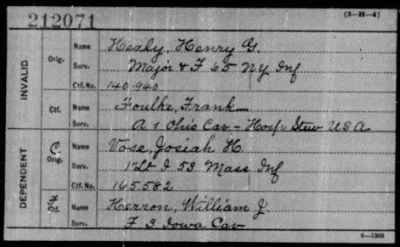 212071
(3-H-4)
INVALID
Orig.
Name Healy, Henry G.
Serv. Major & F 65 N.Y. Inf
Ctf. No. 140-940
Ctf.
Name Foulke, Frank
Serv. A 1 Ohio Cav - Hosp. Stew U.S.A.
DEPENDENT
C. Orig.
Name Vose, Josiah H.
Serv. 1" Lt I 53 Mass Inf
Ctf. No. 165582
Ctf.
Name Herron, William J.
Serv. F 3 Iowa Cav
6-1980